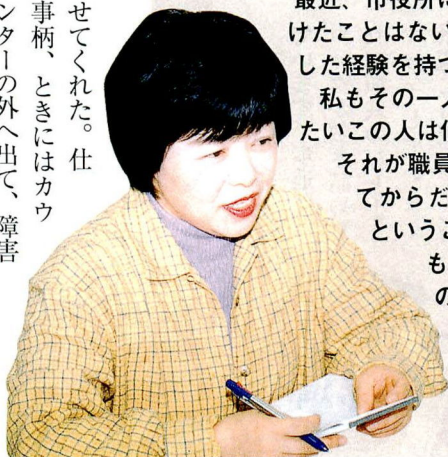 最近、市役所に
けたことはない
した経験を持つ
私もその一人
たいこの人は何
それが職員
てからだ
というこ
も
の
せてくれた。仕
事柄、ときにはカウ
ンターの外へ出て、障害